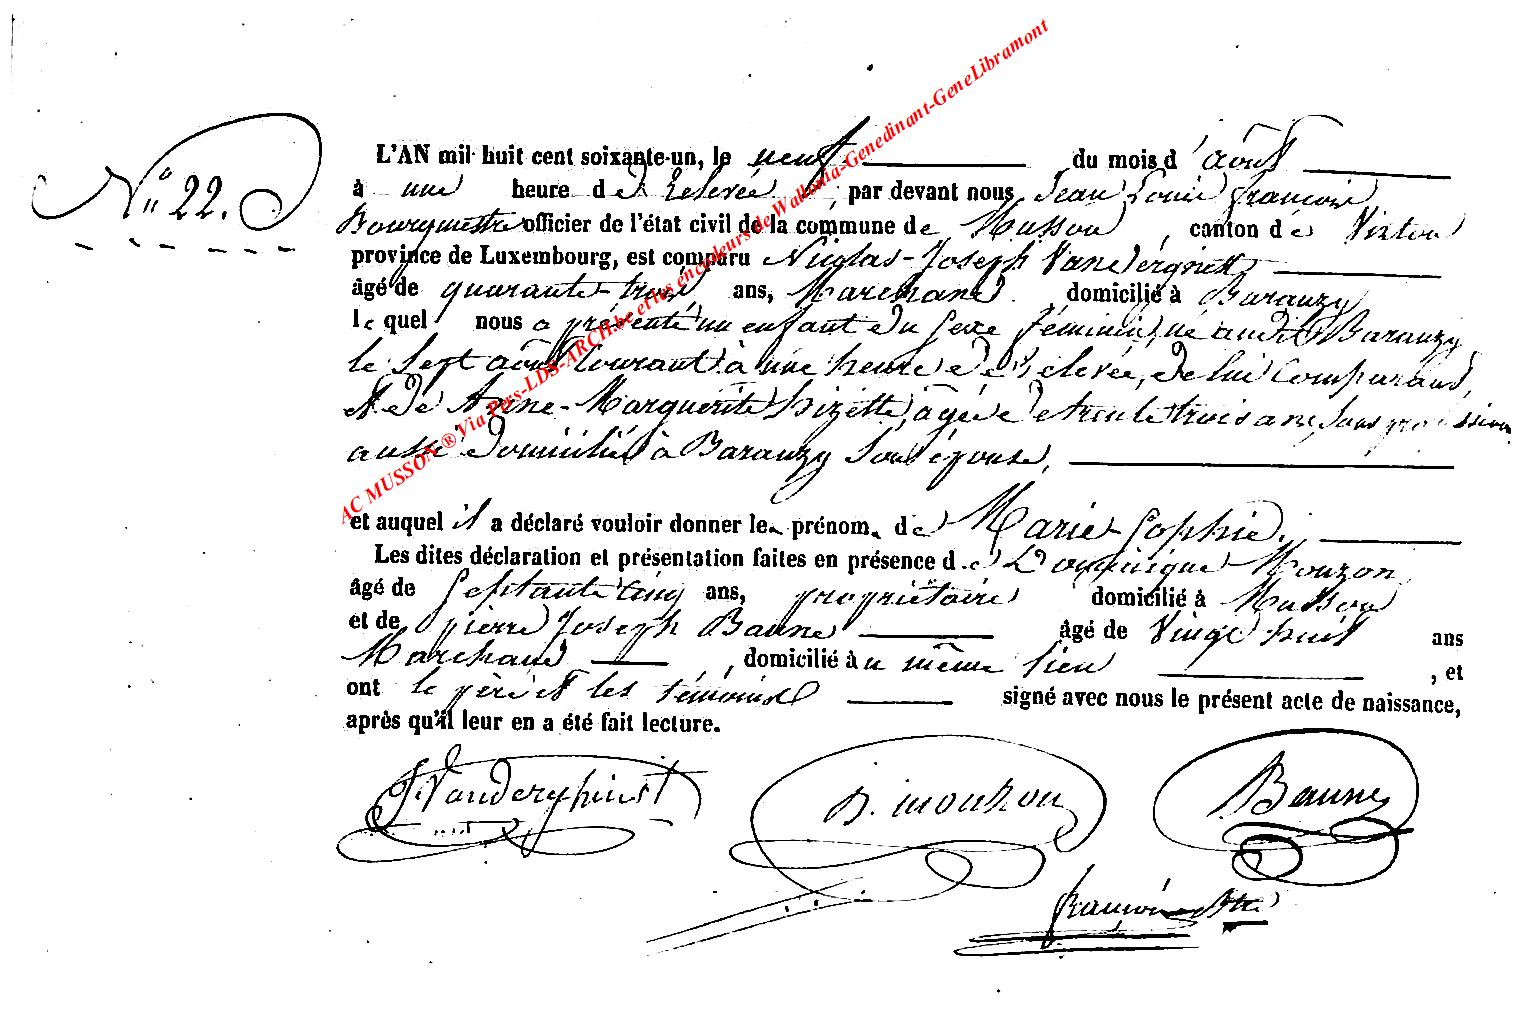 N° 22.
L'AN mil huit cent soixante-un, le neuf du mois d'août
à une heure de relevée, par devant nous Jean Louis françois
Bourguette officier de l'état civil de la commune de Musson, canton de Virton
province de Luxembourg, est comparu Nicolas-Joseph Vanderghinst
âgé de quarante-trois ans, Marchand domicilié à Baranzy
lequel nous a présenté un enfant du sexe féminin, né audit Baranzy,
le sept août courant à une heure de relevée, de lui Comparant,
et de Anne-Marguerite Lizette, agée de trente trois ans, sans profession
aussi domiciliée à Baranzy son épouse,
et auquel il a déclaré vouloir donner le prénom de Marie-Sophie.
Les dites déclaration et présentation faites en présence de Dominique Mouzon
âgé de septante cinq ans, propriétaire domicilié à Musson
et de pierre Joseph Baune âgé de Vingt huit ans
Marchand, domicilié au même lieu, et
ont le père et les témoins signé avec nous le présent acte de naissance,
après qu'il leur en a été fait lecture.
J. Vanderghinst D. mouzon Baune
françois
AC MUSSON ® Via Pers-LDS-ARCH.be et les encodeurs de Wallonia-Genedinant-GeneLibramont